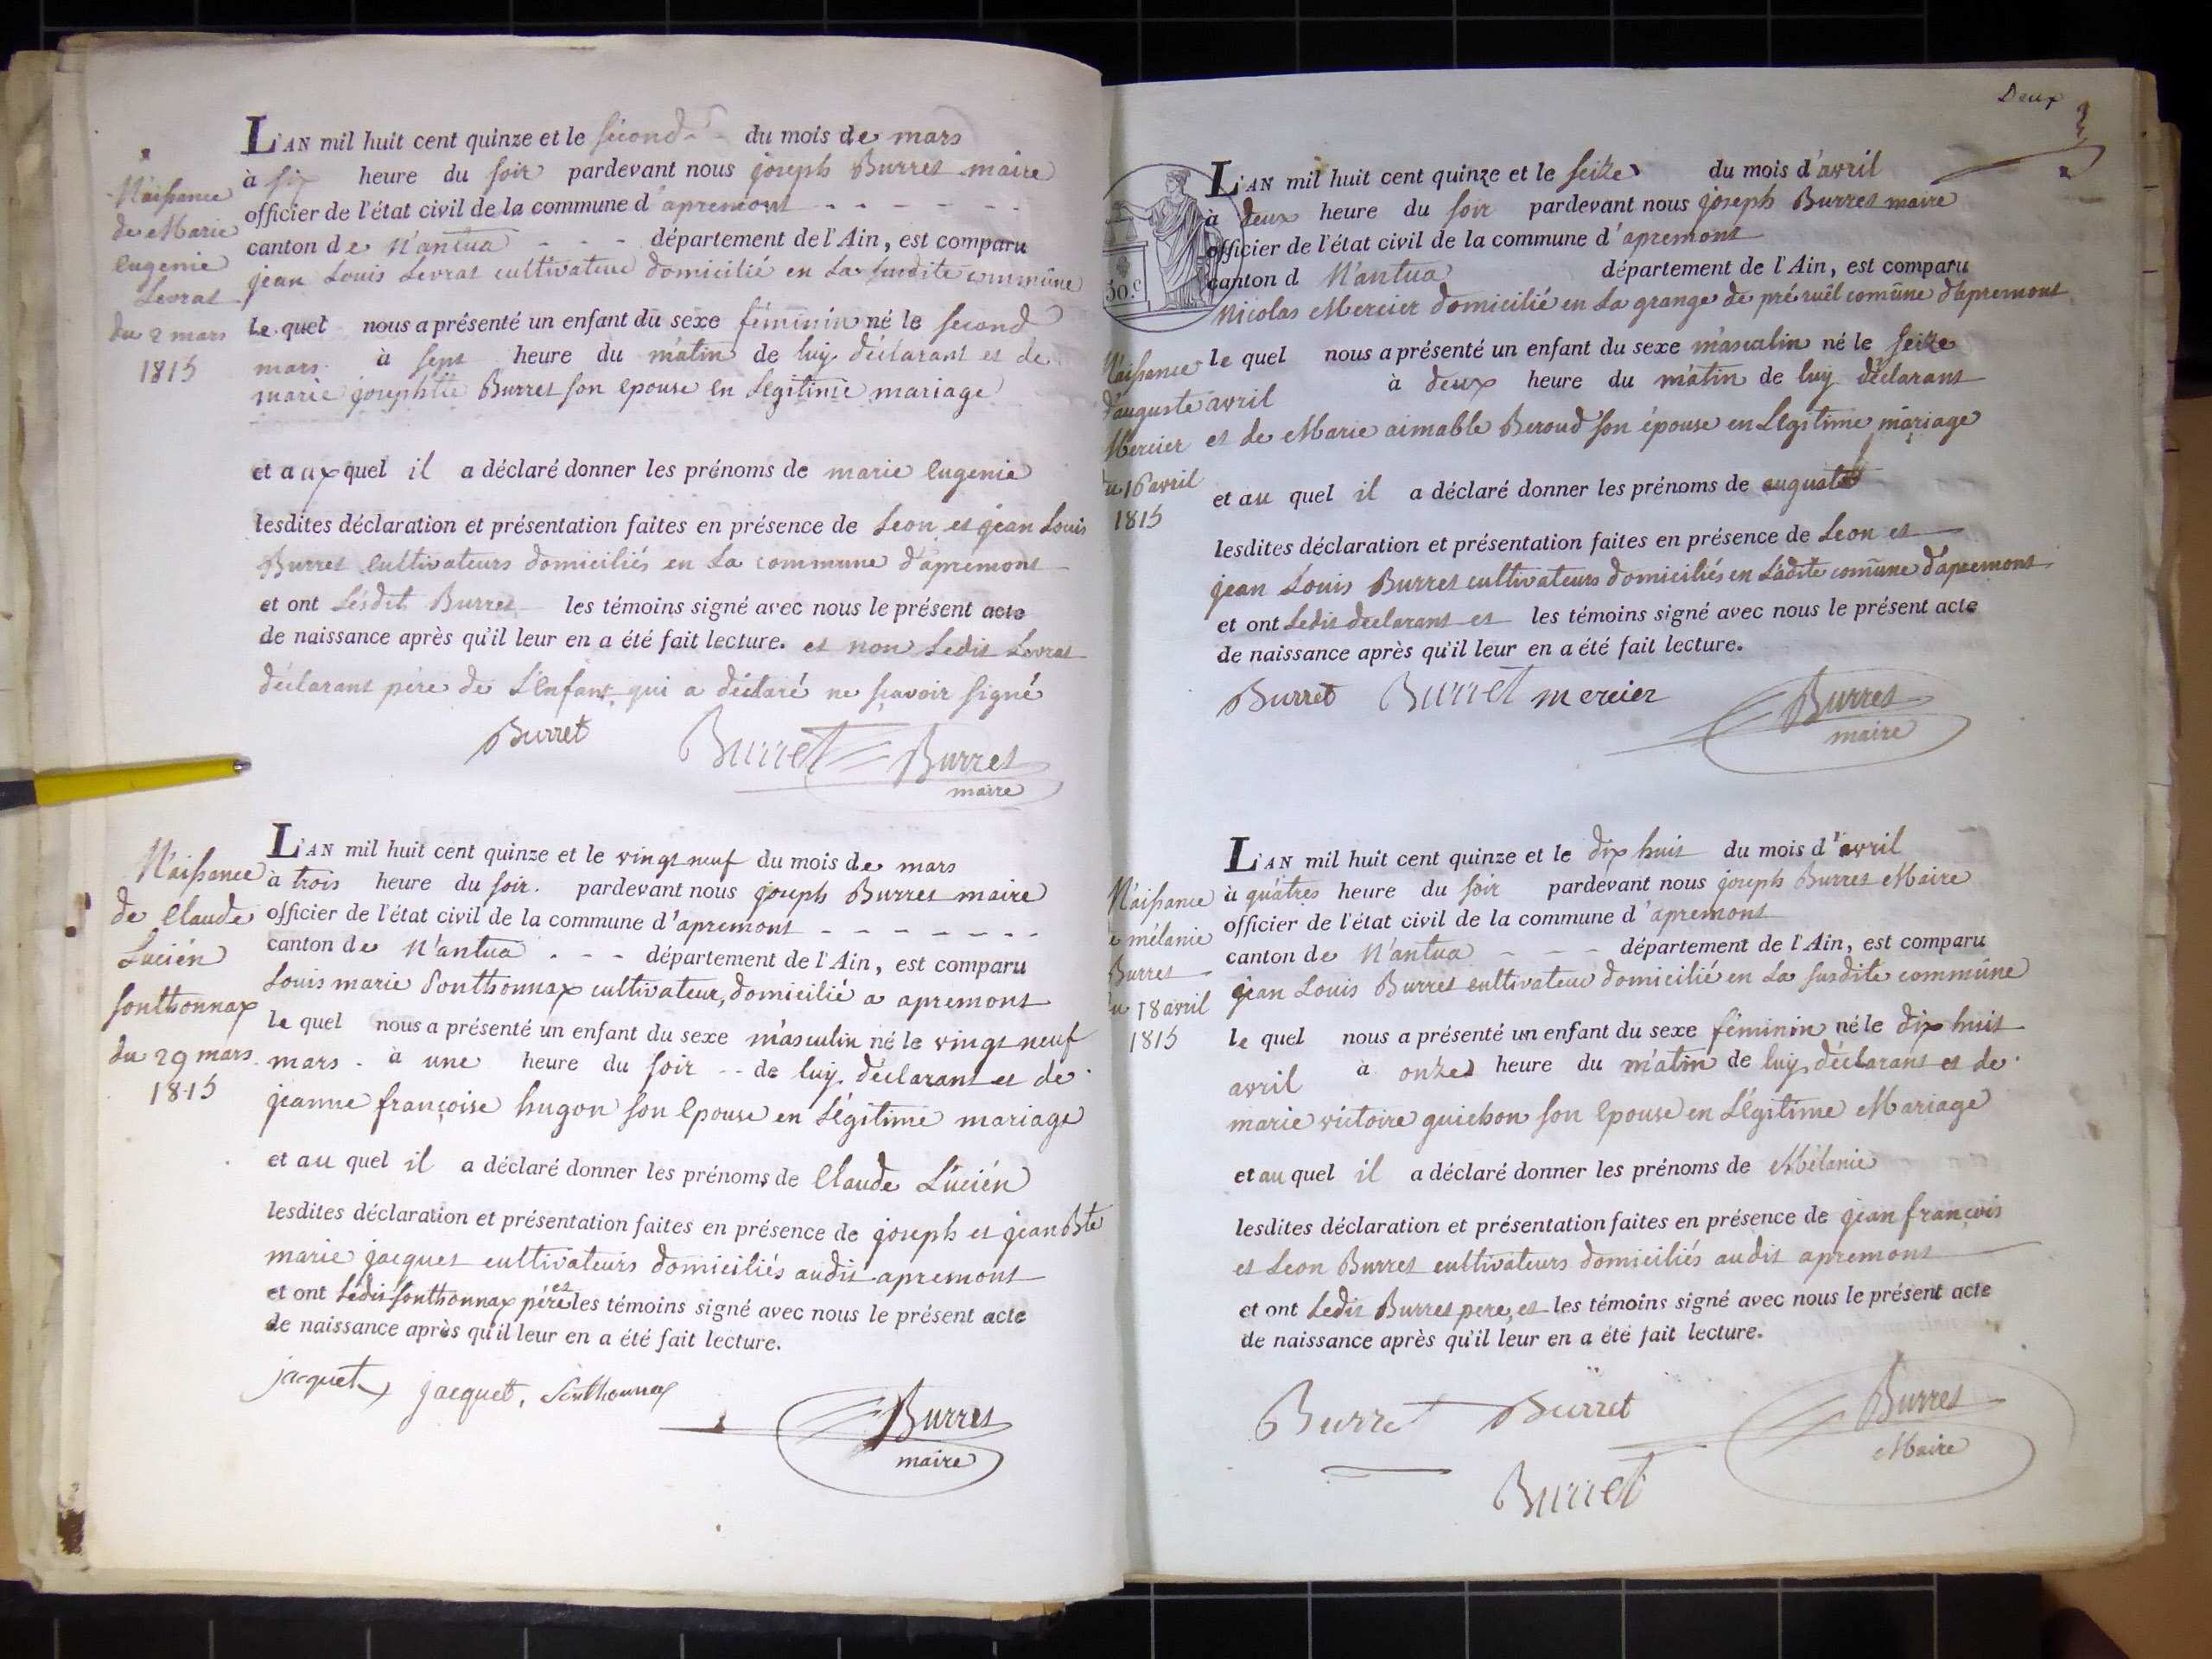 Naissance
de Marie
Eugenie
Levrat
du 2 mars
1815
L'AN mil huit cent quinze et le second du mois de mars
à six heure du soir pardevant nous joseph Burret maire
officier de l'état civil de la commune d'apremont
canton de Nantua département de l'Ain, est comparu
jean Louis Levrat cultivateur domicilié en La susdite commune
le quel nous a présenté un enfant du sexe féminin né le second
mars à sept heure du matin de luy déclarant et de
marie josephte Burret son epouse en Légitime mariage
et aux quel il a déclaré donner les prénoms de marie Eugenie
lesdites déclaration et présentation faites en présence de Leon et jean Louis
Burret cultivateurs domiciliés en La commune d'apremont
et ont Lesdits Burret les témoins signé avec nous le présent acte
de naissance après qu'il leur en a été fait lecture. et non Ledit Levrat
déclarant père de L'enfant qui a déclaré ne sçavoir signé
Burret Burret Burret
maire
Naissance
de Claude
Lucién
Sonthonnax
du 29 mars
1815
L'AN mil huit cent quinze et le vingt neuf du mois de mars
à trois heure du soir. pardevant nous joseph Burret maire
officier de l'état civil de la commune d'apremont
canton de Nantua département de l'Ain, est comparu
Louis marie Sonthonnax cultivateur, domicilié a apremont
le quel nous a présenté un enfant du sexe masculin né le vingt neuf
mars à une heure du soir de luy déclarant et de
jeanne françoise hugon son Epouse en Légitime mariage
et au quel il a déclaré donner les prénoms de Claude Lucién
lesdites déclaration et présentation faites en présence de joseph et jean Bte
marie jacquet cultivateurs domiciliés audit apremont
et ont Ledit Sonthonnax père et les témoins signé avec nous le présent acte
de naissance après qu'il leur en a été fait lecture.
jacquet jacquet, Sonthonnax
Burret
maire
Deux
50.c
Naissance
d'auguste
Mercier
du 16 avril
1815
L'AN mil huit cent quinze et le seize du mois d'avril
à deux heure du soir pardevant nous joseph Burret maire
officier de l'état civil de la commune d'apremont
canton d Nantua département de l'Ain, est comparu
Nicolas Mercier domicilié en La grange de pré ruêl comûne d'apremont
le quel nous a présenté un enfant du sexe masculin né le seize
avril à deux heure du matin de luy déclarant
et de Marie aimable Beroud son épouse en Légitime mariage
et au quel il a déclaré donner les prénoms de auguste
lesdites déclaration et présentation faites en présence de Leon et
jean Louis Burret cultivateurs domiciliés en Ladite comûne d'apremont
et ont Ledit declarant et les témoins signé avec nous le présent acte
de naissance après qu'il leur en a été fait lecture.
Burret Burret mercier Burret
maire
Naissance
de mélanie
Burret
du 18 avril
1815
L'AN mil huit cent quinze et le dix huit du mois d'avril
à quâtres heure du soir pardevant nous joseph Burret Maire
officier de l'état civil de la commune d'apremont
canton de Nantua département de l'Ain, est comparu
jean Louis Burret cultivateur domicilié en La susdite commune
le quel nous a présenté un enfant du sexe féminin né le dix huit
avril à onze heure du matin de luy déclarant et de
marie victoire guichon son epouse en Légitime Mariage
et au quel il a déclaré donner les prénoms de Mélanie
lesdites déclaration et présentation faites en présence de jean françois
et Leon Burret cultivateurs domiciliés audit apremont
et ont Ledit Burret pere, et les témoins signé avec nous le présent acte
de naissance après qu'il leur en a été fait lecture.
Burret Burret Burret
Maire
Burret